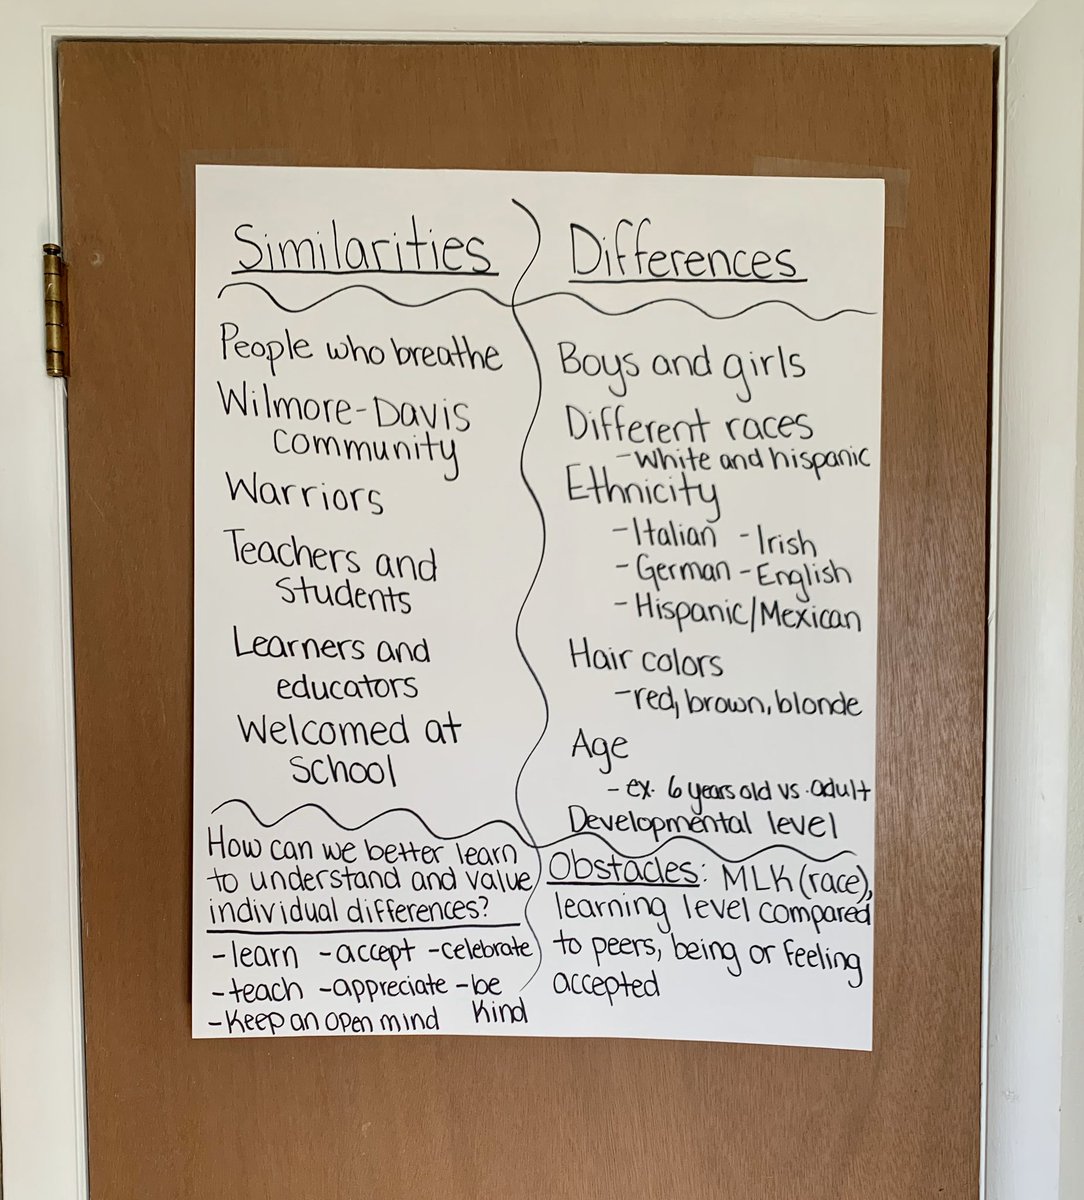 Similarities
People who breathe
Wilmore-Davis
community
Warriors
Teachers and
students
Learners and
educators
Welcomed at
school
Differences
Boys and girls
Different races
-white and hispanic
Ethnicity
-Italian -Irish
-German -English
-Hispanic/Mexican
Hair colors
-red, brown, blonde
Age
-ex. 6 years old vs. adult
Developmental level
How can we better learn
to understand and value
individual differences?
-learn -accept -celebrate
-teach -appreciate -be
kind
-Keep an open mind
Obstacles: MLK (race),
learning level compared
to peers, being or feeling
accepted